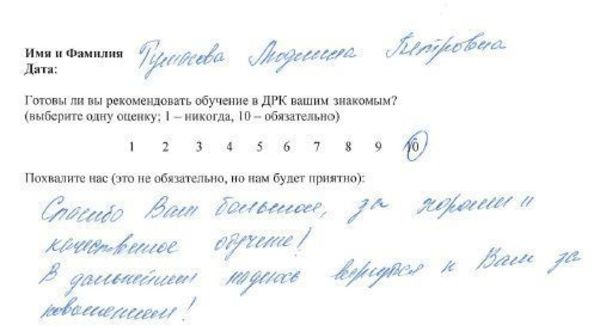 Имя и Фамилия Гуменова Людмила Петровна
Дата:
Готовы ли вы рекомендовать обучение в ДРК вашим знакомым?
(выберите одну оценку; 1 – никогда, 10 – обязательно)
1 2 3 4 5 6 7 8 9 10
Похвалите нас (это не обязательно, но нам будет приятно):
Спасибо Вам большое, за хорошее и
качественное обучение!
В дальнейшем надеюсь вернуться к Вам за
повышением!